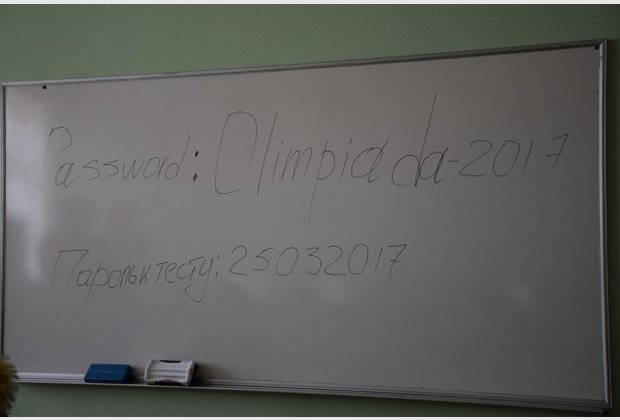 Password: Olimpiada-2017
Пароль к тесту: 25032017